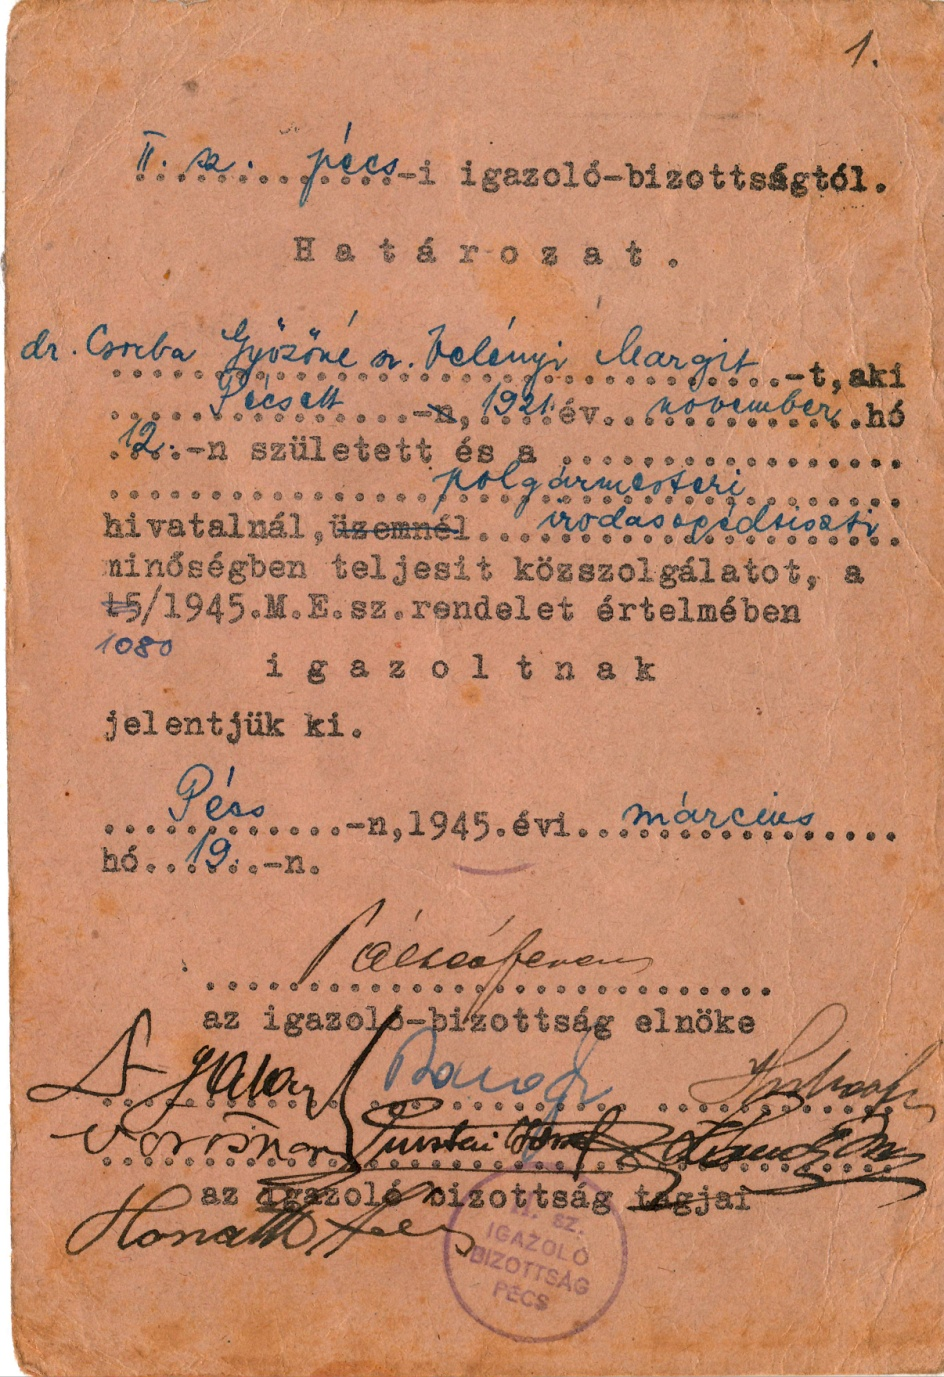 1.
II. sz. pécs-i igazoló-bizottságtól.
Határozat.
dr. Csorba Győzőné sz. Velényi Margit -t, aki
Pécsett -n, 1921. év november hó
12.-n született és a
polgármesteri
hivatalnál, üzemnél irodasegédtiszti
minőségben teljesit közszolgálatot, a
15/1945.M.E.sz.rendelet értelmében
1080
igazoltnak
jelentjük ki.
Pécs -n, 1945.évi március
hó 19.-n.
az igazoló-bizottság elnöke
az igazoló bizottság tagjai
Horváth
II. SZ.
IGAZOLÓ
BIZOTTSÁG
PÉCS